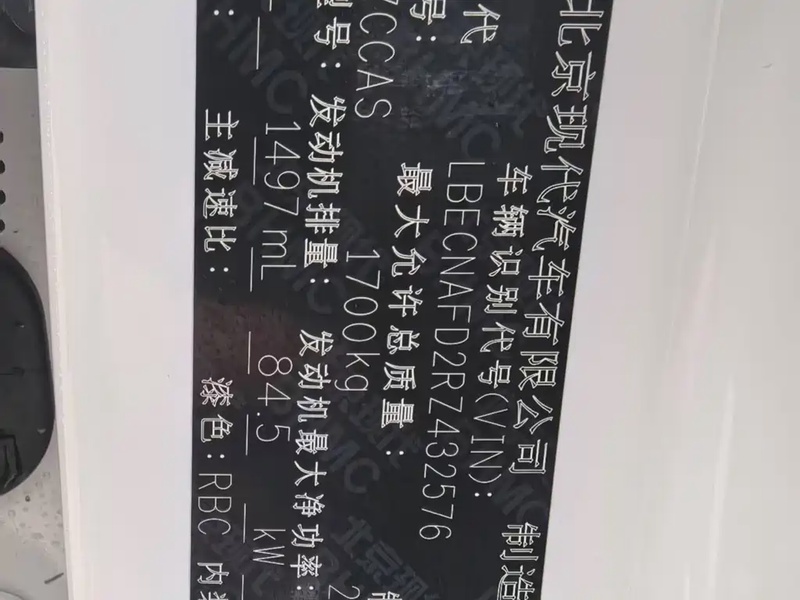 北京现代汽车有限公司 制造
代 车辆识别代号(VIN):
号: LBECNAFD2RZ432576
7CCAS 最大允许总质量:
型号: 1700kg
发动机排量: 发动机最大净功率:
1497mL 84.5 kW
主减速比: 漆色: RBC 内